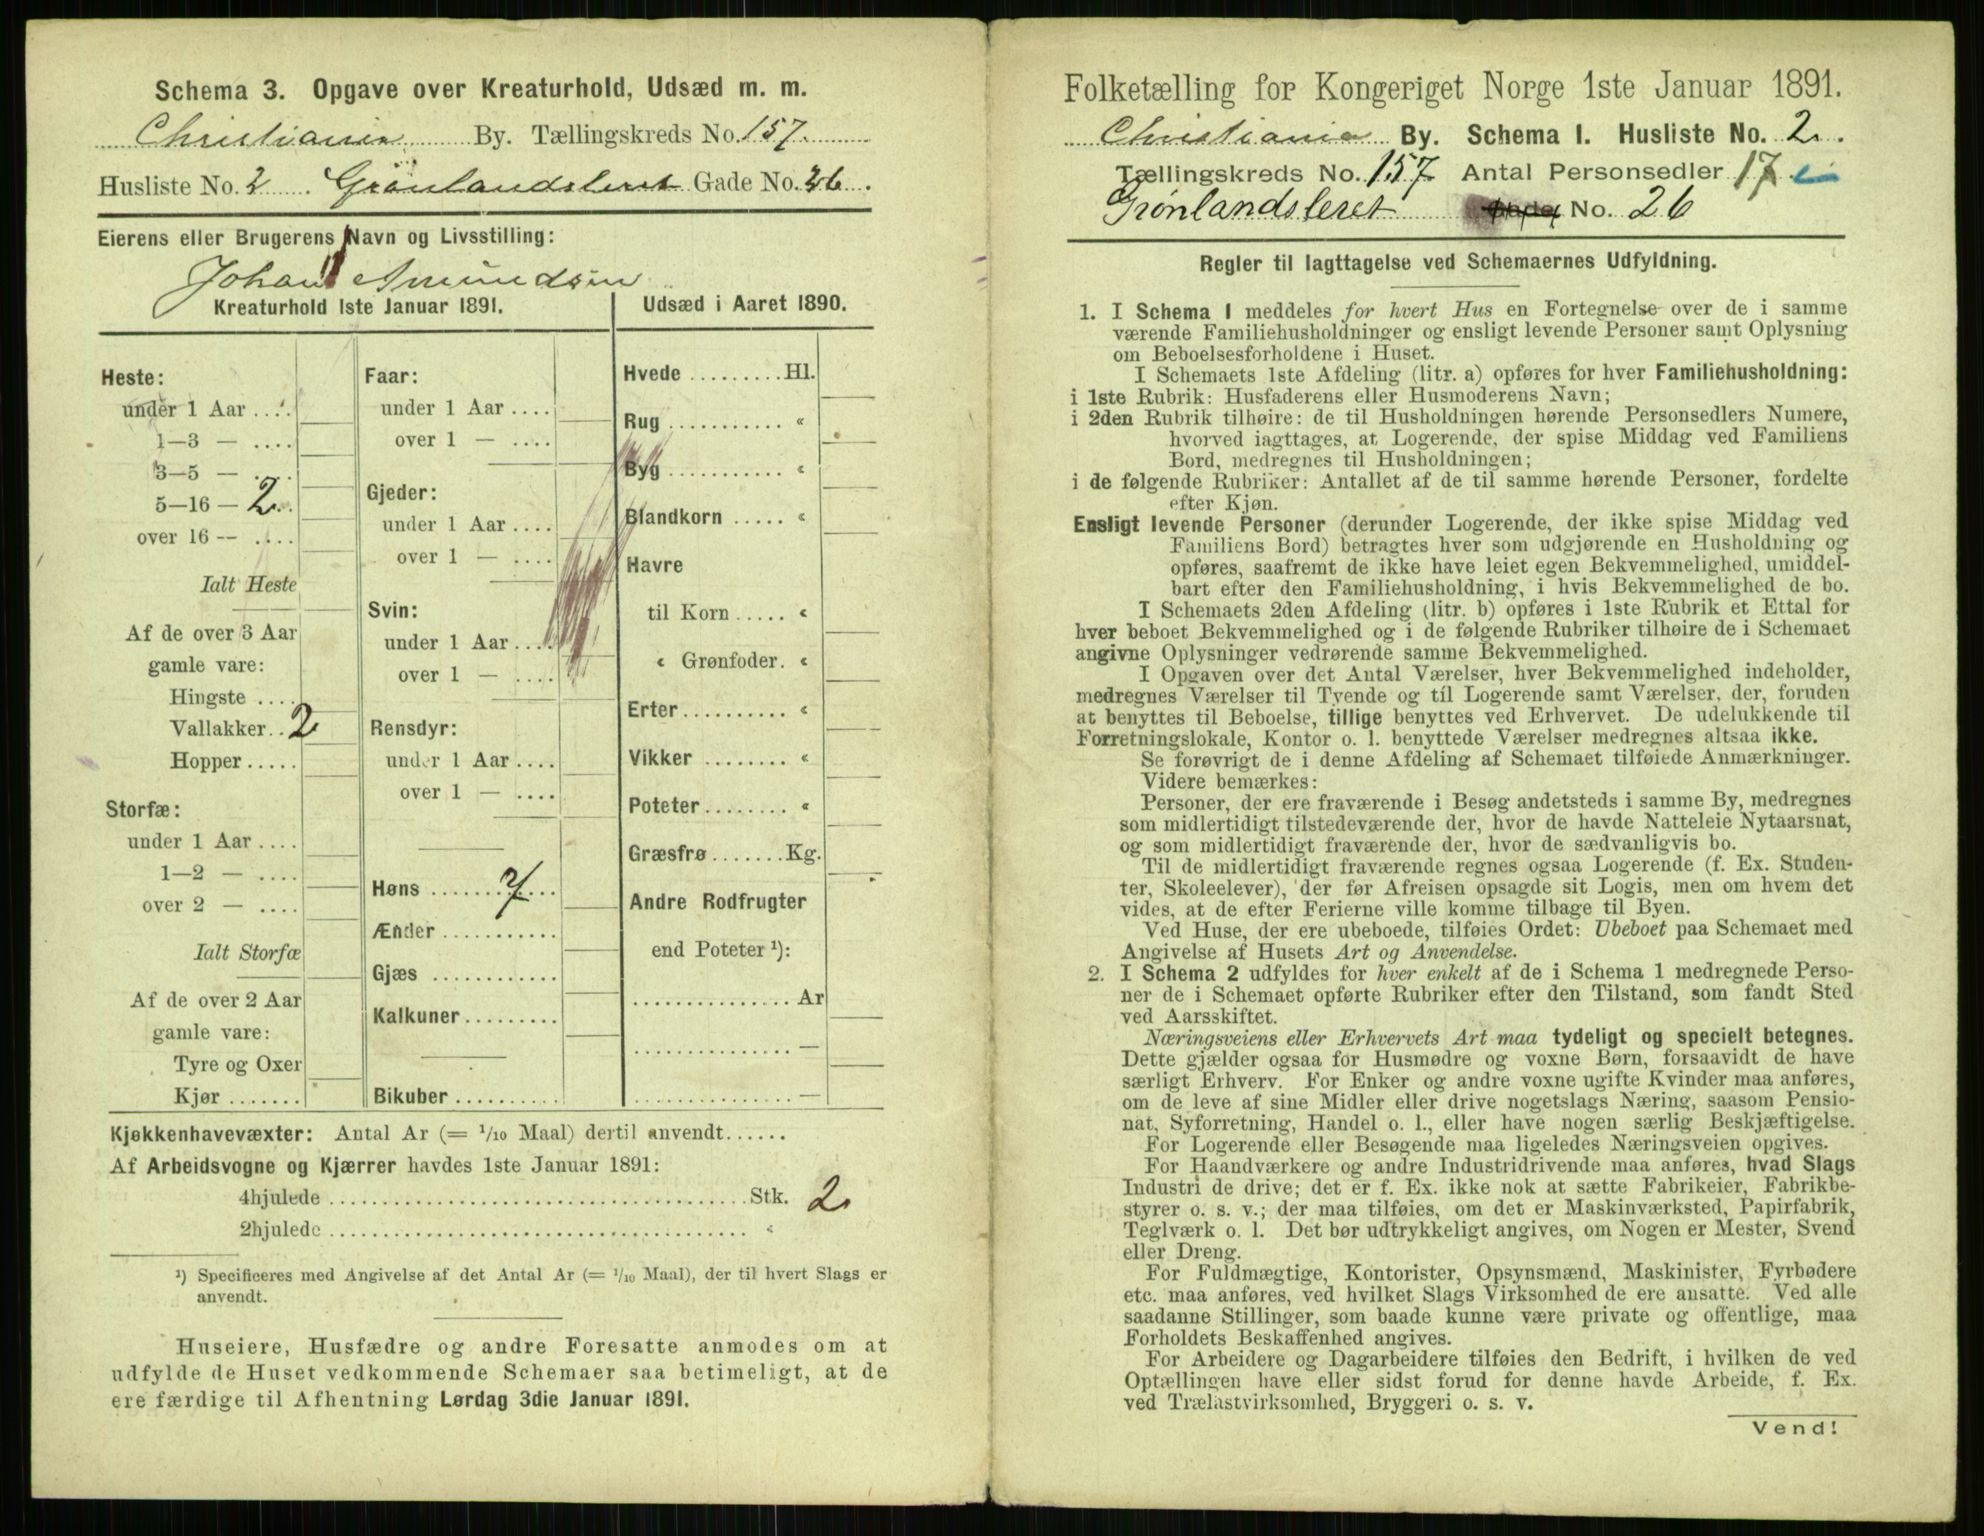 Schema 3. Opgave over Kreaturhold, Udsæd m. m.
Christiania By. Tællingskreds No. 157.
Husliste No. 2 Grönlandsleret Gade No. 26.
Eierens eller Brugerens Navn og Livsstilling:
Johan Amundsen
Kreaturhold 1ste Januar 1891.
Heste:
under 1 Aar ....
1—3 — ....
3—5 — ....
5—16 — 2
over 16 — ....
Ialt Heste
Af de over 3 Aar
gamle vare:
Hingste ....
Vallakker.. 2
Hopper.....
Storfæ:
under 1 Aar ....
1—2 — ....
over 2 — ....
Ialt Storfæ
Af de over 2 Aar
gamle vare:
Tyre og Oxer
Kjør .......
Faar:
under 1 Aar ....
over 1 — ....
Gjeder:
under 1 Aar ....
over 1 — ....
Svin:
under 1 Aar ....
over 1 — ....
Rensdyr:
under 1 Aar ....
over 1 — ....
Høns ........ 7
Ænder ...........
Gjæs ............
Kalkuner.........
Bikuber ..........
Udsæd i Aaret 1890.
Hvede .........Hl.
Rug ........... «
Byg ........... «
Blandkorn ..... «
Havre
til Korn ..... «
« Grønfoder. «
Erter.......... «
Vikker ........ «
Poteter........ «
Græsfrø .......Kg.
Andre Rodfrugter
end Poteter ¹):
............... Ar
............... —
............... —
Kjøkkenhavevæxter: Antal Ar (= 1/10 Maal) dertil anvendt......
Af Arbeidsvogne og Kjærrer havdes 1ste Januar 1891:
4hjulede ........................................Stk. 2
2hjulede ........................................ «
¹) Specificeres med Angivelse af det Antal Ar (= 1/10 Maal), der til hvert Slags er
anvendt.
Huseiere, Husfædre og andre Foresatte anmodes om at
udfylde de Huset vedkommende Schemaer saa betimeligt, at de
ere færdige til Afhentning Lørdag 3die Januar 1891.
Folketælling for Kongeriget Norge 1ste Januar 1891.
Christiania By. Schema 1. Husliste No. 2.
Tællingskreds No. 157 Antal Personsedler 17
Grønlandsleret Gade No. 26
Regler til Iagttagelse ved Schemaernes Udfyldning.
1. I Schema 1 meddeles for hvert Hus en Fortegnelse over de i samme
værende Familiehusholdninger og ensligt levende Personer samt Oplysning
om Beboelsesforholdene i Huset.
I Schemaets 1ste Afdeling (litr. a) opføres for hver Familiehusholdning:
i 1ste Rubrik: Husfaderens eller Husmoderens Navn;
i 2den Rubrik tilhøire: de til Husholdningen hørende Personsedlers Numere,
hvorved iagttages, at Logerende, der spise Middag ved Familiens
Bord, medregnes til Husholdningen;
i de følgende Rubriker: Antallet af de til samme hørende Personer, fordelte
efter Kjøn.
Ensligt levende Personer (derunder Logerende, der ikke spise Middag ved
Familiens Bord) betragtes hver som udgjørende en Husholdning og
opføres, saafremt de ikke have leiet egen Bekvemmelighed, umiddel-
bart efter den Familiehusholdning, i hvis Bekvemmelighed de bo.
I Schemaets 2den Afdeling (litr. b) opføres i 1ste Rubrik et Ettal for
hver beboet Bekvemmelighed og i de følgende Rubriker tilhøire de i Schemaet
angivne Oplysninger vedrørende samme Bekvemmelighed.
I Opgaven over det Antal Værelser, hver Bekvemmelighed indeholder,
medregnes Værelser til Tyende og til Logerende samt Værelser, der, foruden
at benyttes til Beboelse, tillige benyttes ved Erhvervet. De udelukkende til
Forretningslokale, Kontor o. l. benyttede Værelser medregnes altsaa ikke.
Se forøvrigt de i denne Afdeling af Schemaet tilføiede Anmærkninger.
Videre bemærkes:
Personer, der ere fraværende i Besøg andetsteds i samme By, medregnes
som midlertidigt tilstedeværende der, hvor de havde Natteleie Nytaarsnat,
og som midlertidigt fraværende der, hvor de sædvanligvis bo.
Til de midlertidigt fraværende regnes ogsaa Logerende (f. Ex. Studen-
ter, Skoleelever), der før Afreisen opsagde sit Logis, men om hvem det
vides, at de efter Ferierne ville komme tilbage til Byen.
Ved Huse, der ere ubeboede, tilføies Ordet: Ubeboet paa Schemaet med
Angivelse af Husets Art og Anvendelse.
2. I Schema 2 udfyldes for hver enkelt af de i Schema 1 medregnede Perso-
ner de i Schemaet opførte Rubriker efter den Tilstand, som fandt Sted
ved Aarsskiftet.
Næringsveiens eller Erhvervets Art maa tydeligt og specielt betegnes.
Dette gjælder ogsaa for Husmødre og voxne Børn, forsaavidt de have
særligt Erhverv. For Enker og andre voxne ugifte Kvinder maa anføres,
om de leve af sine Midler eller drive nogetslags Næring, saasom Pensio-
nat, Syforretning, Handel o. l., eller have nogen særlig Beskjæftigelse.
For Logerende eller Besøgende maa ligeledes Næringsveien opgives.
For Haandværkere og andre Industridrivende maa anføres, hvad Slags
Industri de drive; det er f. Ex. ikke nok at sætte Fabrikeier, Fabrikbe-
styrer o. s. v.; der maa tilføies, om det er Maskinværksted, Papirfabrik,
Teglværk o. l. Det bør udtrykkeligt angives, om Nogen er Mester, Svend
eller Dreng.
For Fuldmægtige, Kontorister, Opsynsmænd, Maskinister, Fyrbødere
etc. maa anføres, ved hvilket Slags Virksomhed de ere ansatte. Ved alle
saadanne Stillinger, som baade kunne være private og offentlige, maa
Forholdets Beskaffenhed angives.
For Arbeidere og Dagarbeidere tilføies den Bedrift, i hvilken de ved
Optællingen have eller sidst forud for denne havde Arbeide, f. Ex.
ved Trælastvirksomhed, Bryggeri o. s. v.
Vend!